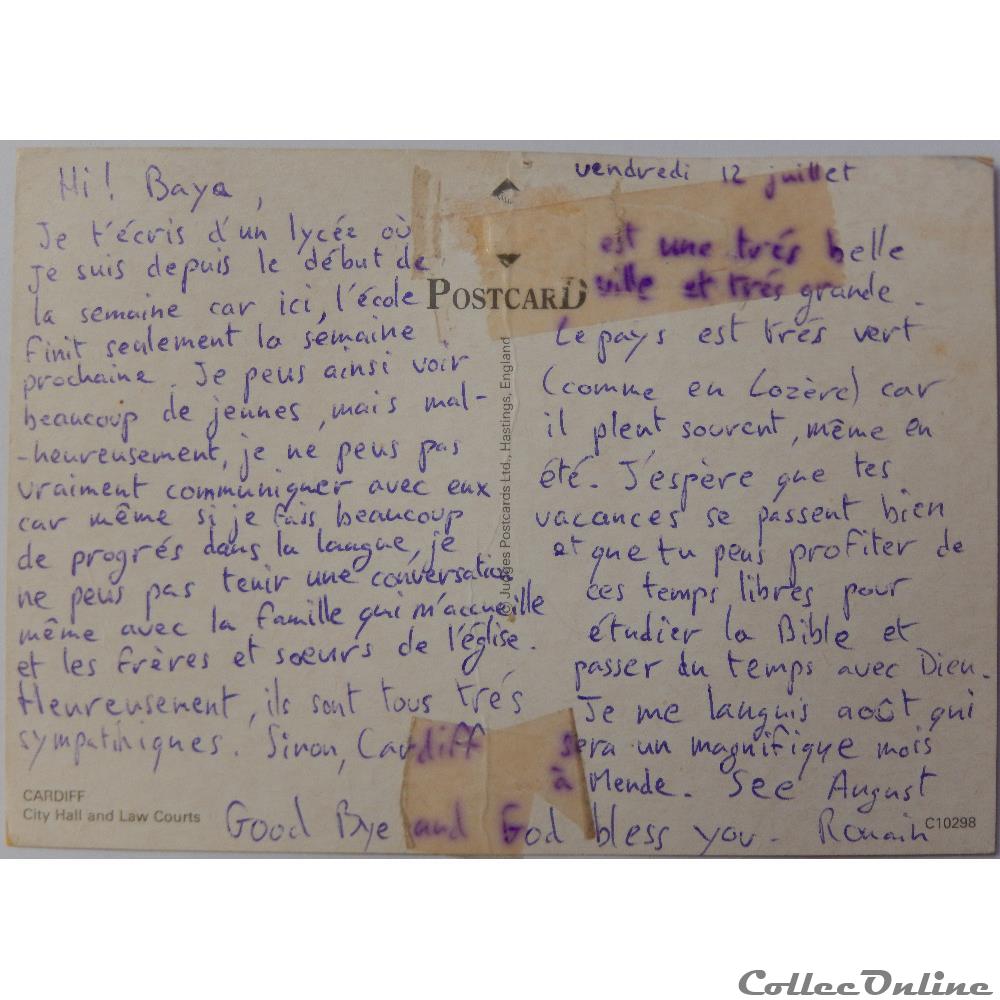 Hi! Baya,
Je t'écris d'un lycée où
je suis depuis le début de
la semaine car ici, l'école
finit seulement la semaine
prochaine. Je peus ainsi voir
beaucoup de jeunes, mais mal-
-heureusement, je ne peus pas
vraiment communiquer avec eux
car même si je fais beaucoup
de progrés dans la langue, je
ne peus pas tenir une conversation
même avec la famille qui m'accueille
et les frères et sœurs de l'église.
Heureusement, ils sont tous trés
sympathiques. Sinon, Cardiff
vendredi 12 juillet
est une trés belle
ville et trés grande.
Le pays est trés vert
(comme en Lozère) car
il pleut souvent, même en
été. J'espère que tes
vacances se passent bien
et que tu peus profiter de
ces temps libres pour
étudier la Bible et
passer du temps avec Dieu.
Je me languis août qui
sera un magnifique mois
à Mende. See August
Good Bye and God bless you. Romain
POSTCARD
© Judges Postcards Ltd., Hastings, England
CARDIFF
City Hall and Law Courts
C10298
CollecOnline